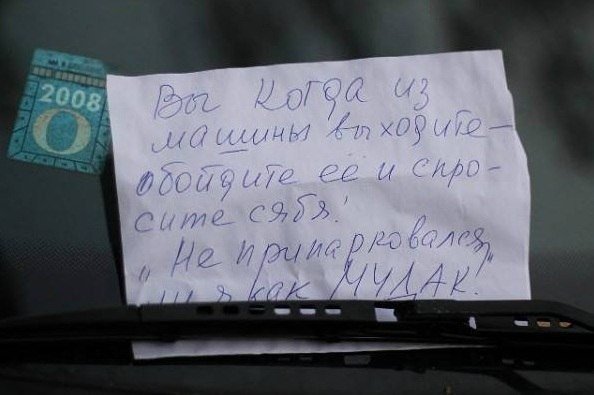 2008
O
Вы когда из
машины выходите -
обойдите её и спро-
сите сябя!
„Не припарковался
ли я как МУДАК!"